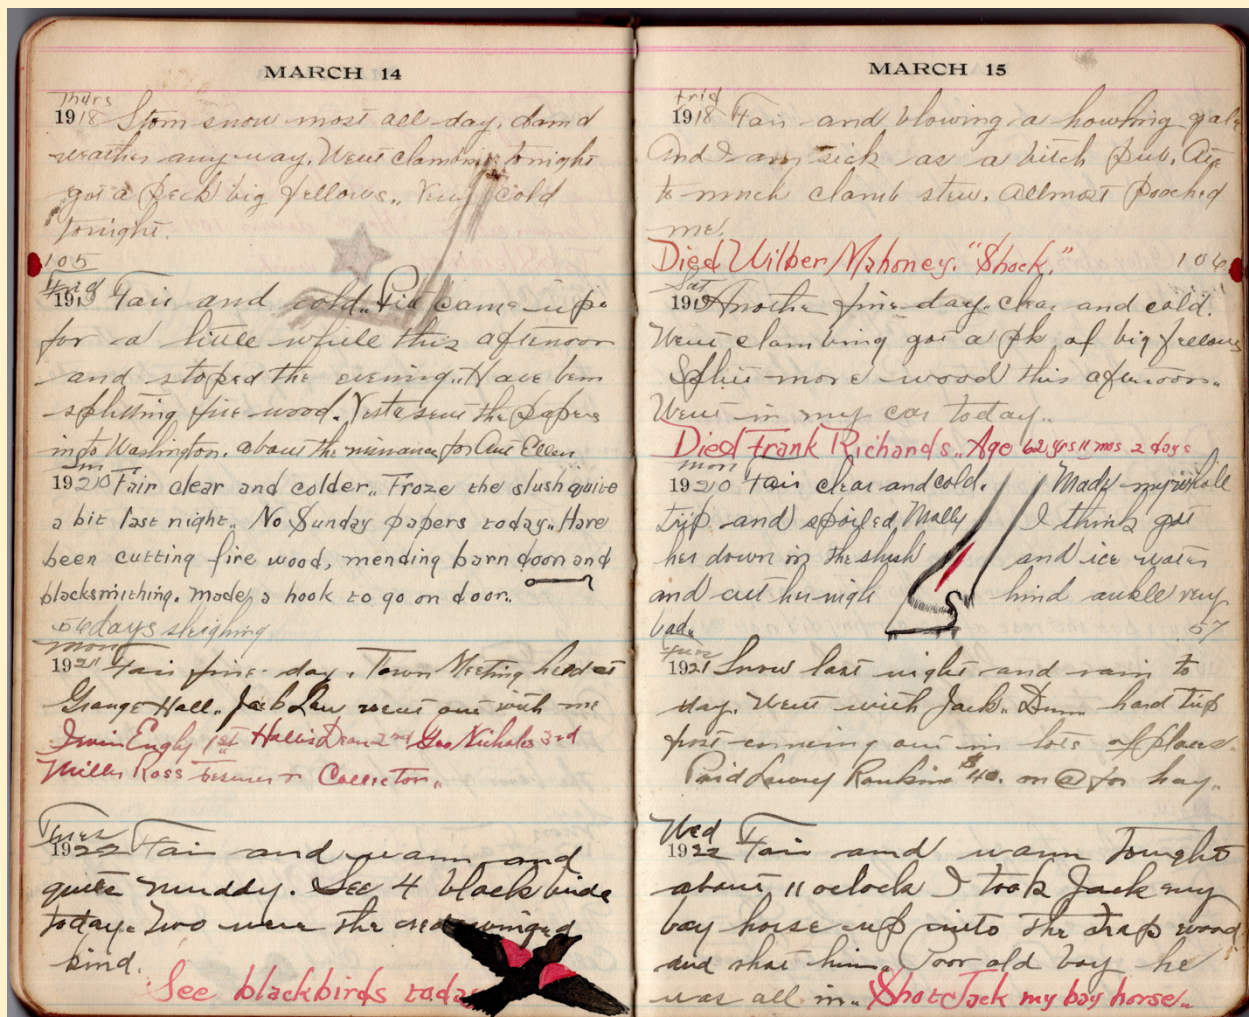 MARCH 14
Thurs
1918 Storm snow most all day. damd
weather any way. Went clambing tonight
got a peck big fellows.. Very cold
tonight.
105
Frid
1919 Fair and cold.. came up
for a little while this afternoon
and stoped the evening.. Have ben
splitting fire wood. Yesta sent the papers
into Washington. about the for Aunt Ellen
Sun
1920 Fair clear and colder.. Froze the slush quite
a bit last night.. No Sunday papers today.. Have
been cutting fire wood, mending barn door and
blacksmithing. Made a hook to go on door..
56 days sleighing
mon
1921 Fair fine day. Town Meeting held at
Grange Hall. Jack Law went out with me
Irvin Eugly 1st Hallis Dean 2nd Geo Nichols 3rd
Miller Ross Tesurer & Collector..
Tues
1922 Fair and warm and
quite muddy. See 4 black birds
today. Two were the red winged
kind.
See blackbirds today
MARCH 15
Frid
1918 Fair and blowing a howling gale
And I am sick as a bitch pup. Ate
to much clamb stew. Allmost pooched
me.
Died Wilber Mahoney. "Shock."
106
Sat
1919 Another fine day. clear and cold.
Went clambing got a pk of big fellows
Split more wood this afternoon..
Went in my car today..
Died Frank Richards.. Age 62 yrs 11 mos 2 days
mon
1920 Fair clear and cold. Made my whole
trip and spoiled Molly I think got
her down in the slush and ice water
and cut her nigh hind ankle very
bad.
57
Tues
1921 Snow last night and rain to
day. Went with Jack.. Damn hard trip
frost coming out in lots of places.
Paid Lowry Rankins $40. on @ for hay..
Wed
1922 Fair and warm Tonight
about 11 oclock I took Jack my
bay horse up into the wood
and shot him. Poor old boy he
was all in.. Shot Jack my bay horse..